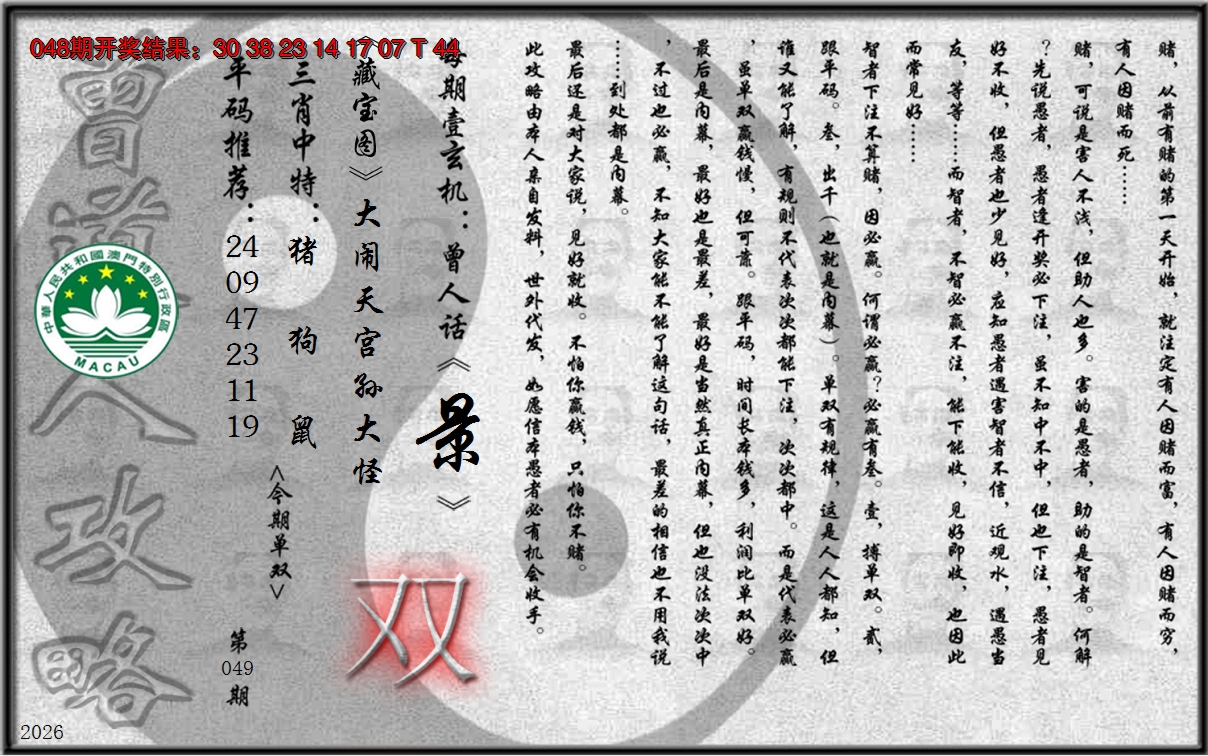 048期开奖结果：30 38 23 14 17 07 T 44
赌，从前有赌的第一天开始，就注定有人因赌而富，有人因赌而穷，
有人因赌而死……
赌，可说是害人不浅，但助人也多。害的是愚者，助的是智者。何解
？先说愚者，愚者逢开奖必下注，虽不知中不中，但也下注，愚者见
好不收，但愚者也少见好，应知愚者遇害智者不信，近观水，遇愚当
友，等等……而智者，不智必赢不注，能下能收，见好即收，也因此
而常见好……
智者下注不算赌，因必赢。何谓必赢？必赢有叁。壹，搏单双。贰，
跟平码。叁，出千（也就是内幕）。单双有规律，这是人人都知，但
谁又能了解，有规则不代表次次都能下注，次次都中。而是代表必赢
，虽单双赢钱慢，但可靠。跟平码，时间长本钱多，利润比单双好。
最后是内幕，最好也是最差，最好是当然真正内幕，但也没法次次中
，不过也必赢，不知大家能不能了解这句话，最差的相信也不用我说
……到处都是内幕。
最后还是对大家说，见好就收。不怕你赢钱，只怕你不赌。
此攻略由本人亲自发料，世外代发，如愿信本愚者必有机会收手。
每期壹玄机：曾人话《景》
《藏宝图》大闹天宫孙大怪
双
三肖中特：猪 狗 鼠
<今期单双>
平码推荐：24 09 47 23 11 19
第049期
曾道人攻略
中華人民共和國澳門特別行政區
MACAU
2026